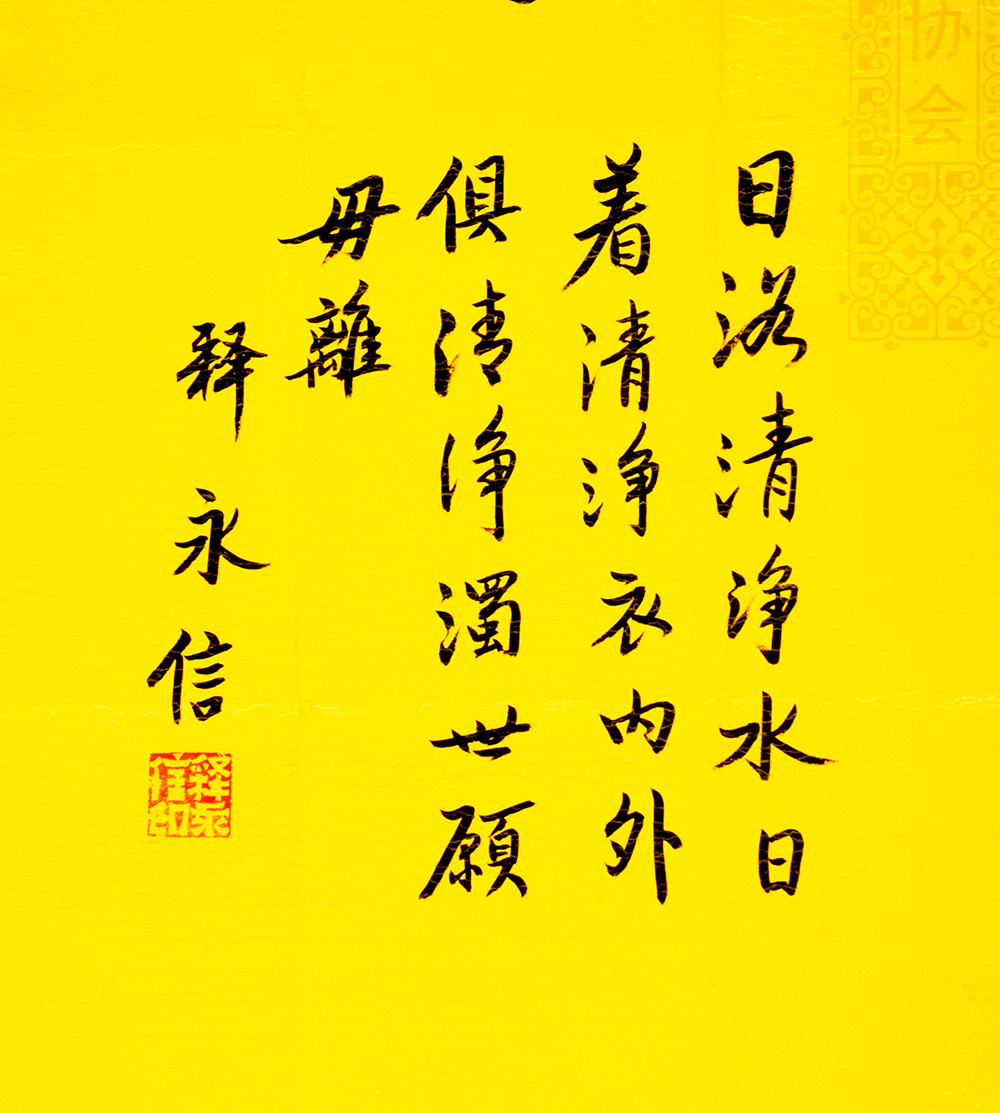 协会
日浴清净水日
着清净衣内外
俱清净濁世願
毋離
释永信
释永信印